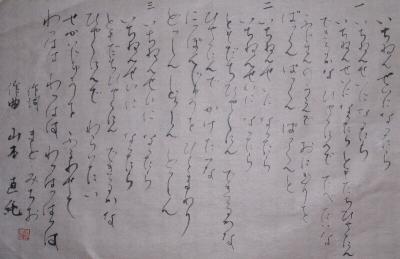 いちねんせいになったら
一
いちねんせいになったら
いちねんせいになったら ともだちひゃくにん
できるかな ひゃくにんで たべたいな
ふじさんのうえで おにぎりを
ぱっくん ぱっくん ぱっくんと
二
いちねんせいに なったら
いちねんせいに なったら
ともだちひゃくにん できるかな
ひゃくにんで かけたいな
にっぽんじゅうを ひとまわり
どっしん どっしん どっしんと
三
いちねんせいに なったら
いちねんせいに なったら
ともだちひゃくにん できるかな
ひゃくにんで わらいたい
せかいじゅうを ふるわせて
わっはは わっはは わっはっは
作詞 まど みちお
作曲 山本 直純